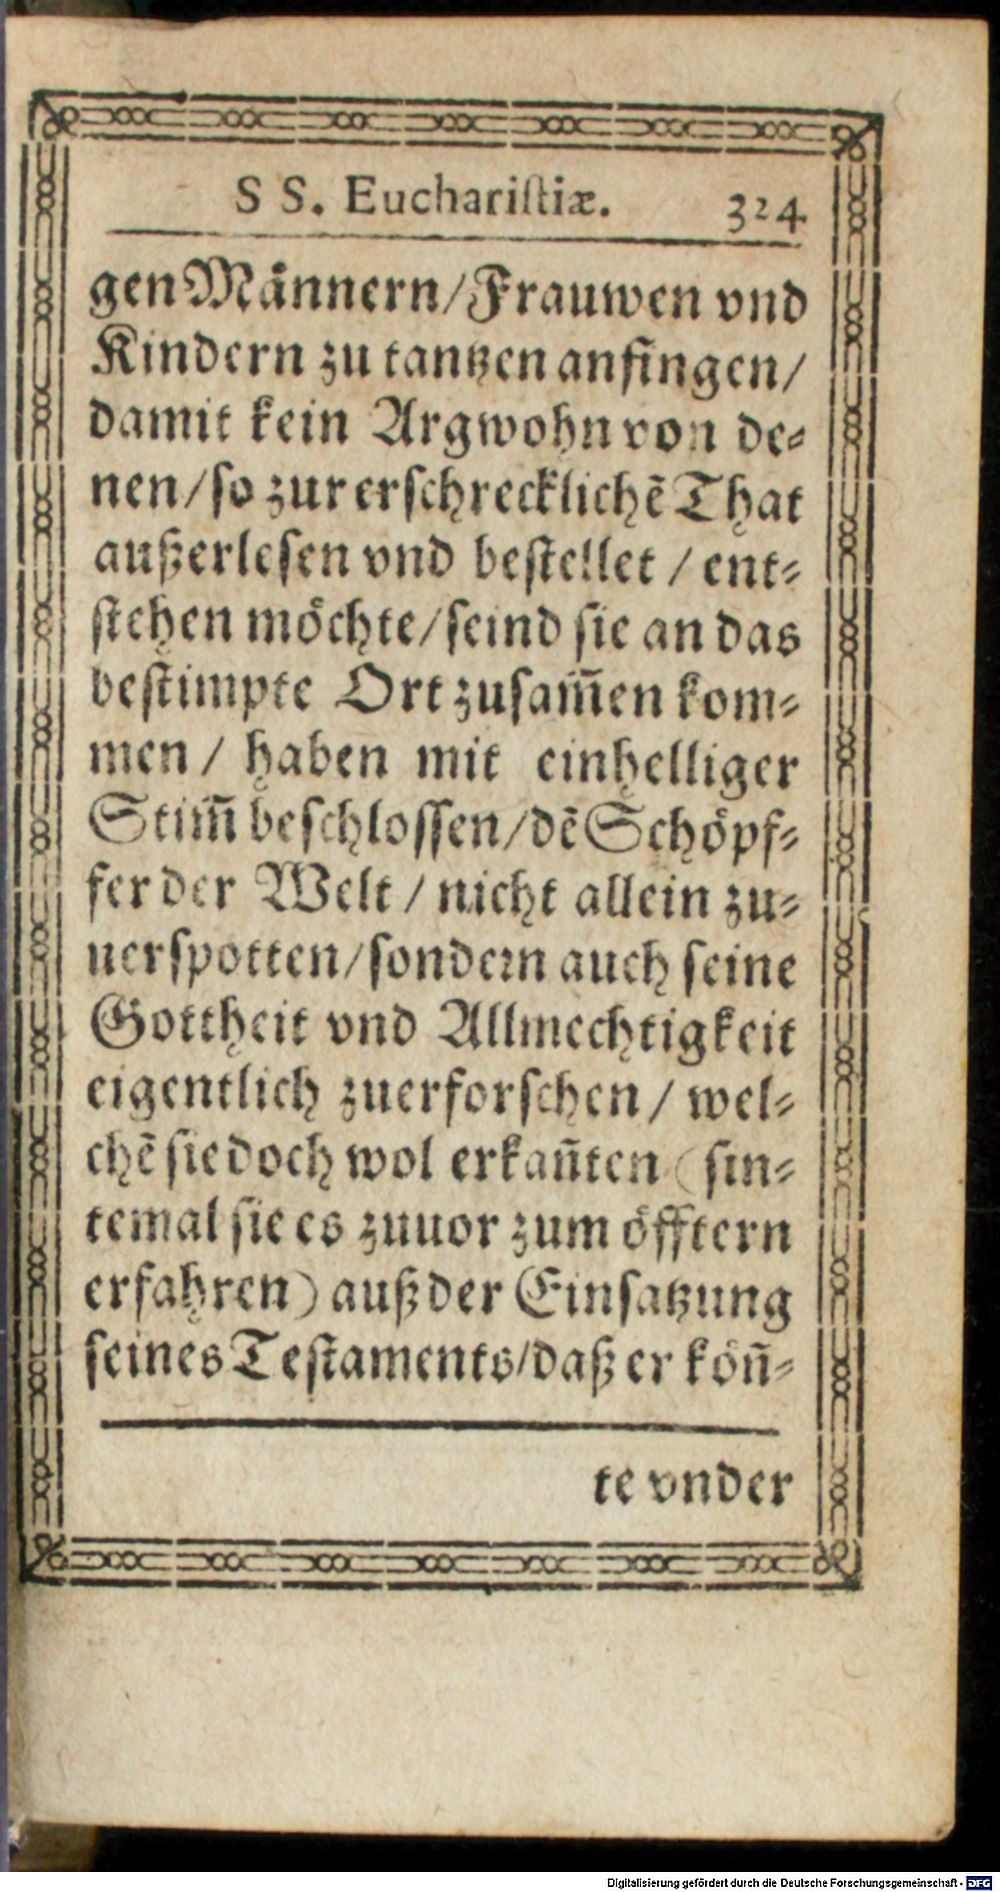 S S. Euchariſtiæ. 324
gen Männern/Frauwen vnd
Kindern zu tantzen anfingen/
damit kein Argwohn von de⸗
nen/ſo zur erſchrecklichẽ That
außerleſen vnd beſtellet / ent⸗
ſtehen möchte/ſeind ſie an das
beſtimpte Ort zuſam̃en kom⸗
men / haben mit einhelliger
Stim̃ beſchloſſen/dẽ Schöpf⸗
fer der Welt / nicht allein zu⸗
uerſpotten/ſondern auch ſeine
Gottheit vnd Allmechtigkeit
eigentlich zuerforſchen / wel⸗
chẽ ſie doch wol erkañten (ſin⸗
temal ſie es zuuor zum öfftern
erfahren) auß der Einſatzung
ſeines Teſtaments/daß er köñ⸗
te vnder
Digitalisierung gefördert durch die Deutsche Forschungsgemeinschaft - DFG